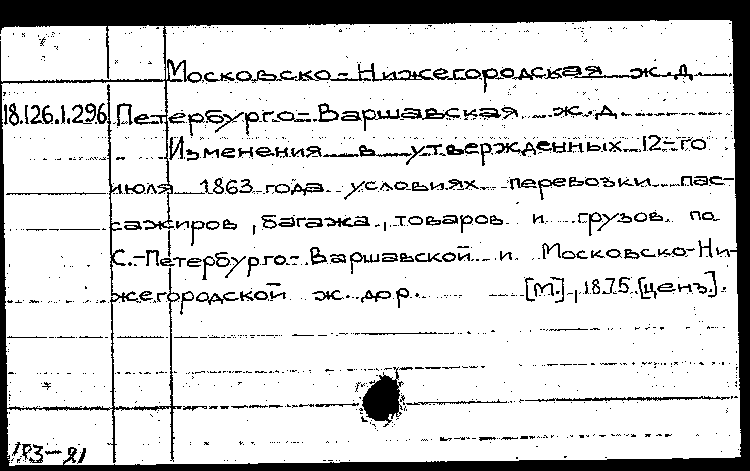 Московско-Нижегородская ж.д.
18.126.1.296 Петербурго-Варшавская ж.д.
Изменения в утвержденных 12-го
июля 1863 года условиях перевозки пас-
сажиров, багажа, товаров и грузов по
С.-Петербурго-Варшавской и Московско-Ни-
жегородской ж. дор. [М.], 1875 [ценз.].
183-81